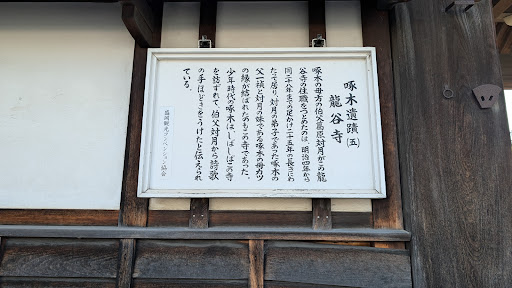 啄木遺蹟（五）
龍谷寺
啄木の母方の伯父葛原対月がこの龍
谷寺の住職をつとめたのは、明治四年から
同二十八年までの足かけ二十五年の長きにわ
たって居り、対月の弟子であった啄木の
父一禎と対月の妹である啄木の母カツ
の縁が結ばれたのもこの寺であった。
少年時代の啄木は、しばしばこの寺
を訪ずれて、伯父対月から詩歌
の手ほどきをうけたと伝えられ
ている。
盛岡観光コンベンション協会